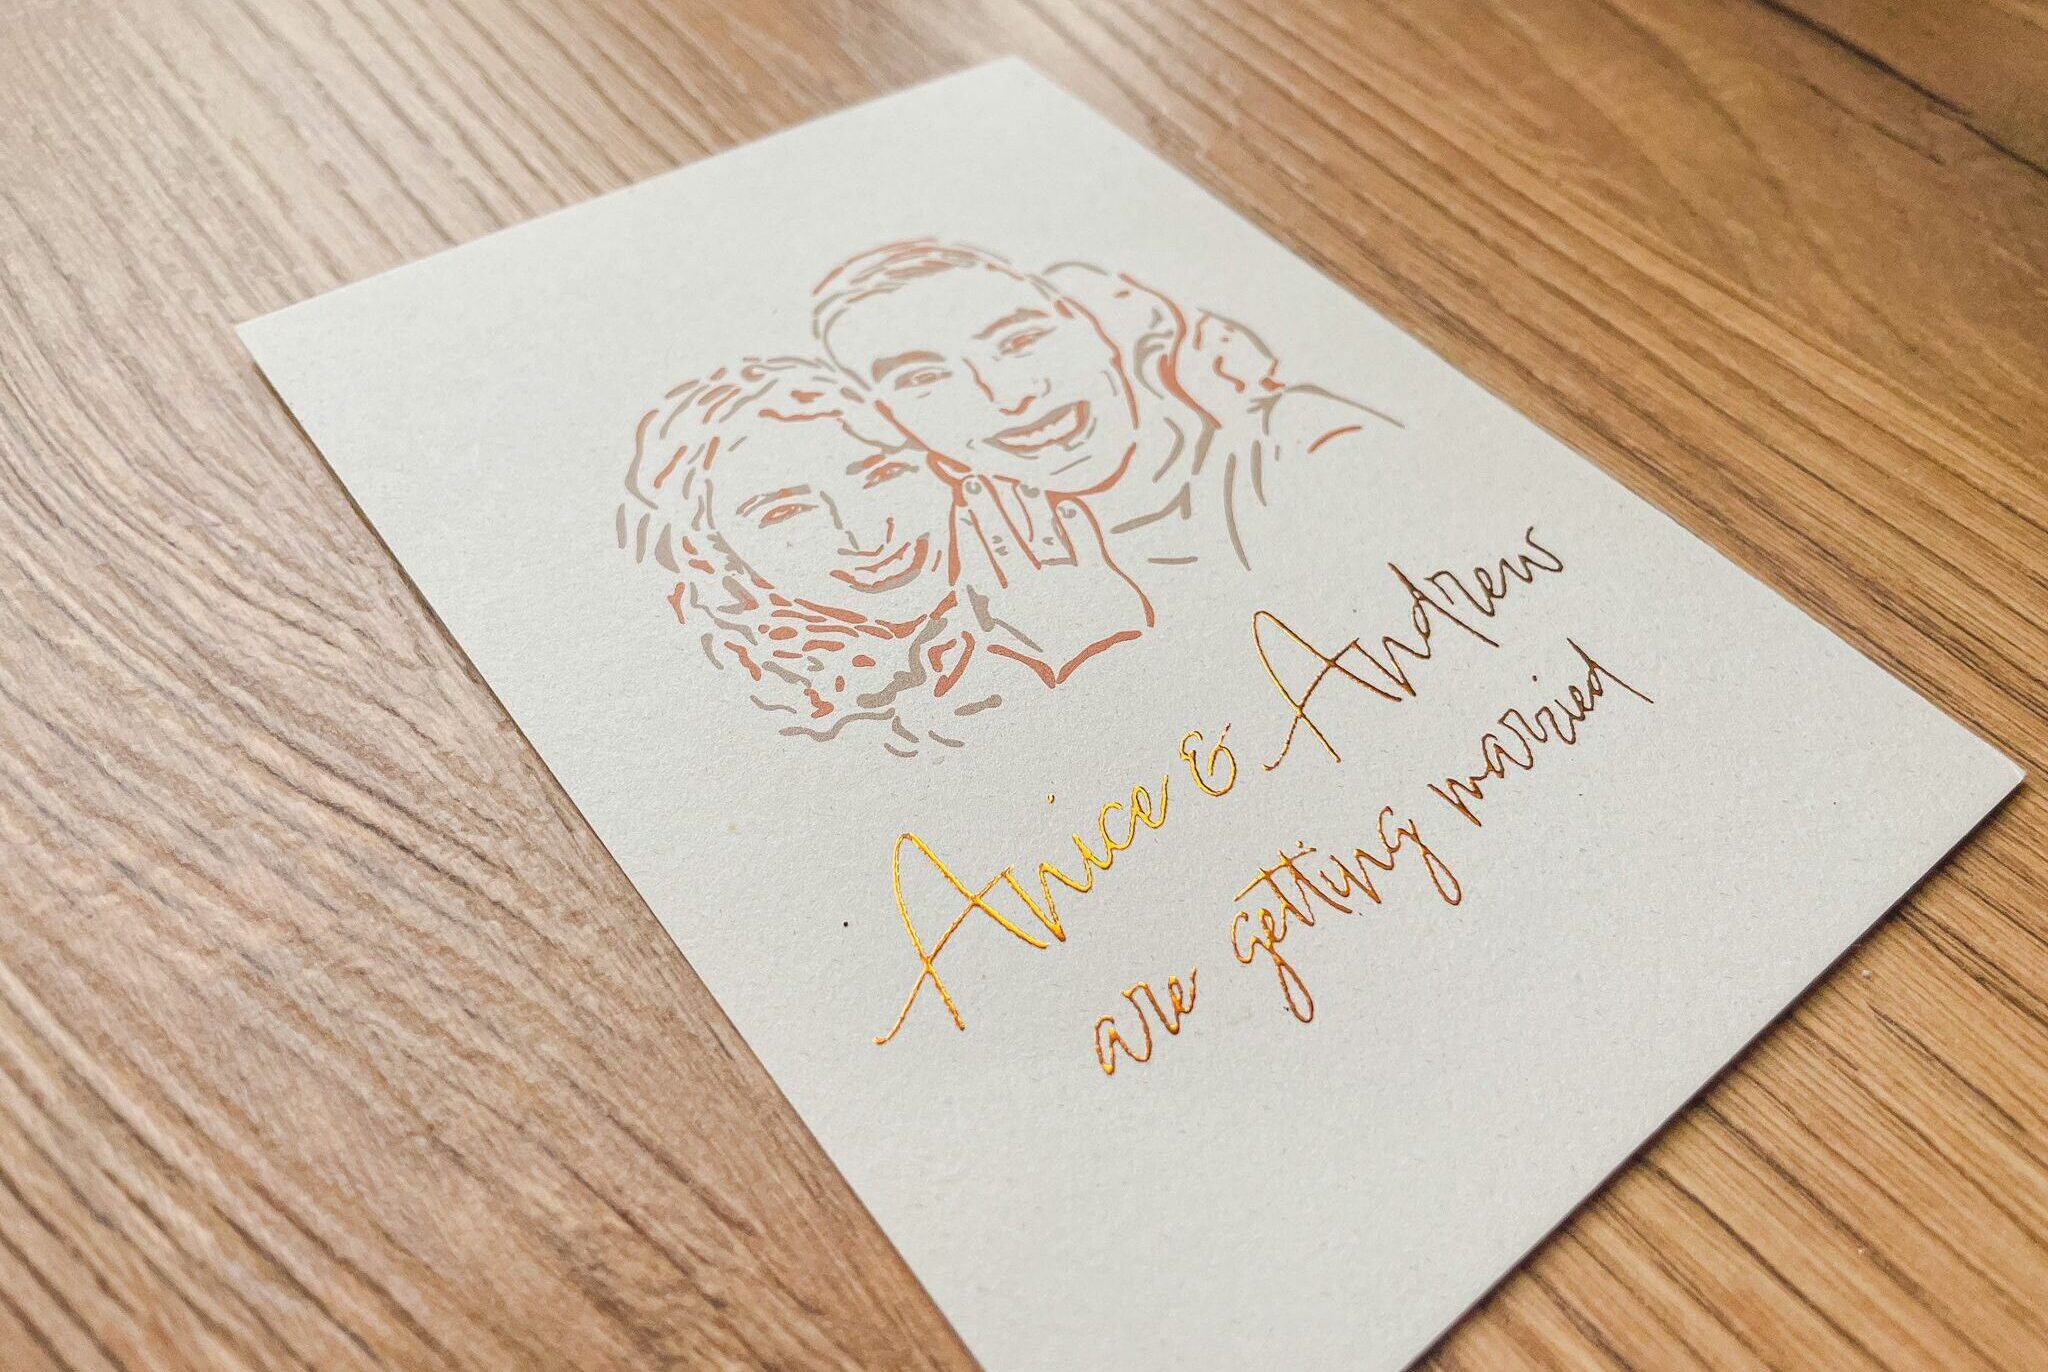 Anice & Andrew
are getting married